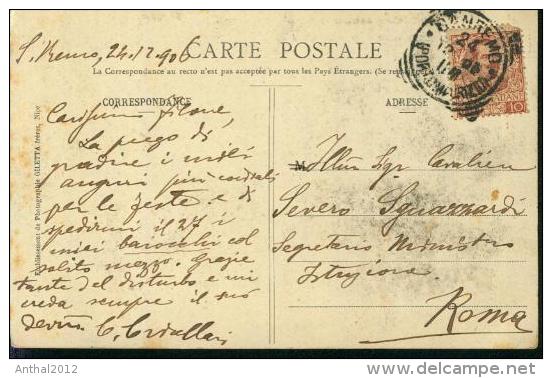 S. Remo, 24.12.906
CARTE POSTALE
La Correspondance au recto n'est pas acceptée par tous les Pays Étrangers. (Se
CORRESPONDANCE
ADRESSE
SANREMO
10
La prego di
gradire i miei
auguri più cordiali
per le feste e di
spedirmi il 27 i
miei barocchi col
solito mezzo. Grazie
tante del disturbo e mi
creda sempre il suo
M
Illmo Sigr Cavaliere
Severo Sguazzardi
Segretario Ministero
Istruzione
Roma
Etablissement de Photographie GILETTA frères, Nice
Anthal2012
www.delcampe.net